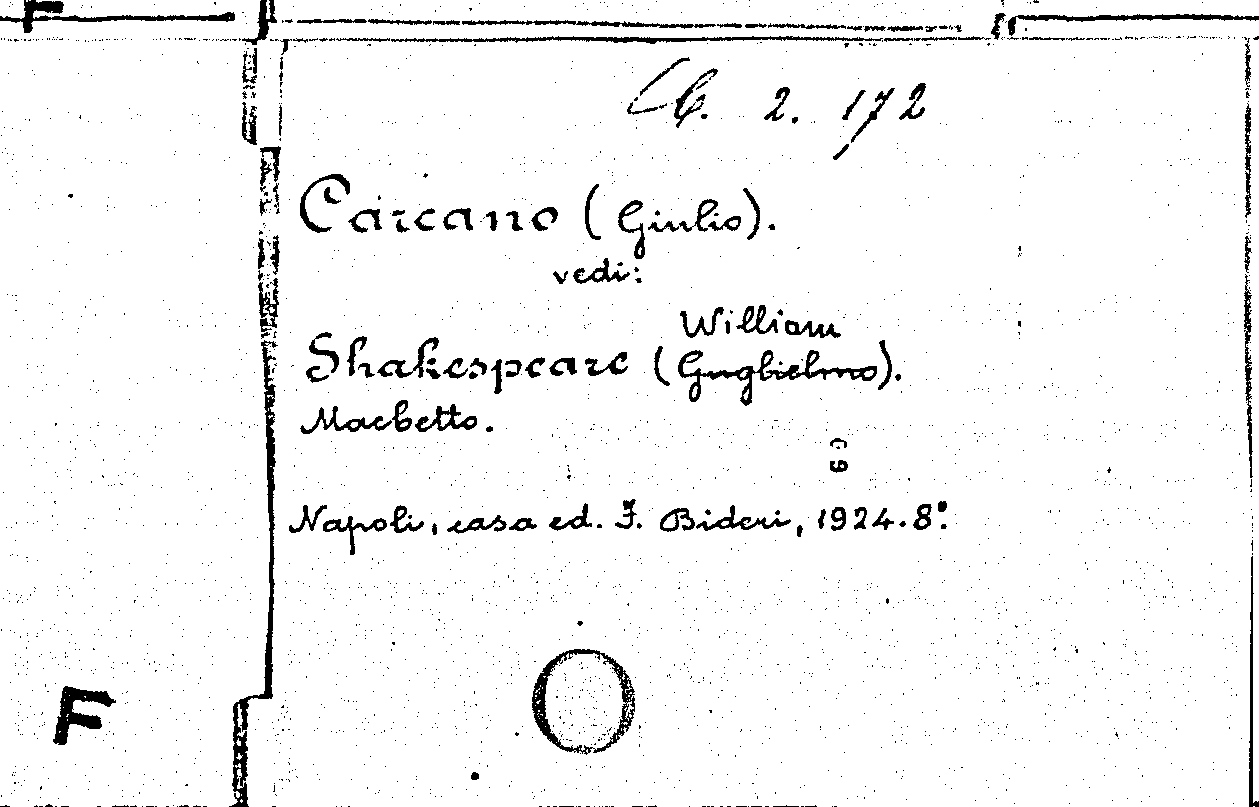 2. 172
Carcano (Giulio).
vedi:
William
Shakespeare (Guglielmo).
Macbetto.
Napoli, casa ed. F. Bideri, 1924. 8°.
F